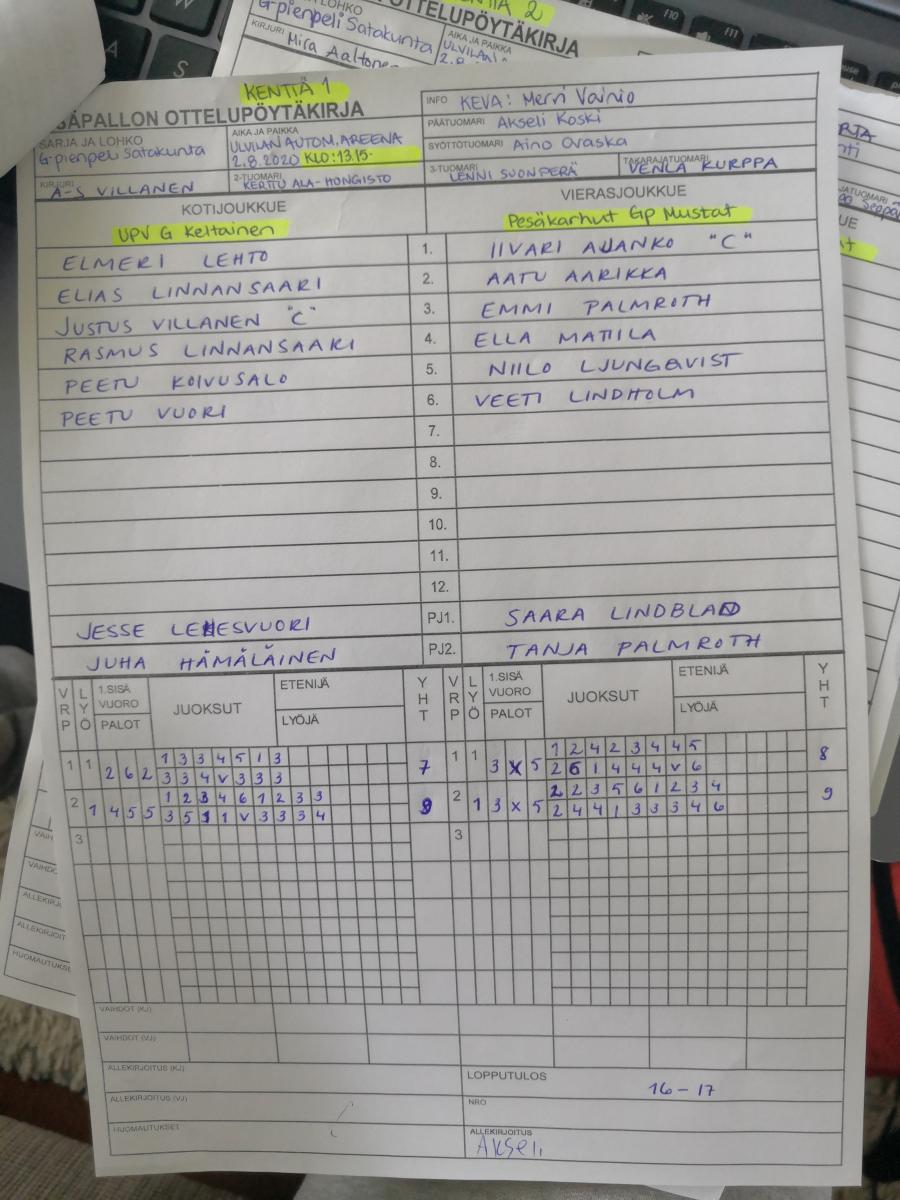 KENTIÄ 2
OTTELUPÖYTÄKIRJA
G-pienpeli Satakunta
KIRJURI
AIKA JA PAIKKA
Mira Aaltonen
KENTIÄ 1
SÄPALLON OTTELUPÖYTÄKIRJA
INFO KEVA: Mervi Vainio
PÄÄTUOMARI Akseli Koski
SARJA JA LOHKO
G-pienpeli Satakunta
AIKA JA PAIKKA
ULVILAN AUTOM. AREENA
2.8.2020 KLO: 13.15-
SYÖTTÖTUOMARI Aino Ovaska
KIRJURI A-S VILLANEN
2-TUOMARI KERTTU ALA-HONGISTO
3-TUOMARI LENNI SUONPERÄ
TAKARAJATUOMARI VENLA KURPPA
KOTIJOUKKUE VIERASJOUKKUE
UPV G Keltainen Pesäkarhut Gp Mustat
ELMERI LEHTO 1. IIVARI ALANKO "C"
ELIAS LINNANSAARI 2. AATU AARIKKA
JUSTUS VILLANEN "C" 3. EMMI PALMROTH
RASMUS LINNANSAARI 4. ELLA MATTILA
PEETU KOIVUSALO 5. NIILO LJUNGQVIST
PEETU VUORI 6. VEETI LINDHOLM
7.
8.
9.
10.
11.
12.
JESSE LEHESVUORI PJ1. SAARA LINDBLAD
JUHA HÄMÄLÄINEN PJ2. TANJA PALMROTH
VRP LYÖ 1.SISÄ VUORO PALOT JUOKSUT ETENIJÄ LYÖJÄ YHT VRP LYÖ 1.SISÄ VUORO PALOT JUOKSUT ETENIJÄ LYÖJÄ YHT
1 3 3 4 5 1 3 1 2 4 2 3 4 4 5
1 1 2 6 2 7 1 1 3 X 5 8
3 3 4 V 3 3 3 2 6 1 4 4 4 V 6
1 2 3 4 6 1 2 3 3 2 2 3 5 6 1 2 3 4
2 1 4 5 5 9 2 1 3 X 5 9
3 5 1 1 V 3 3 3 4 2 4 4 1 3 3 3 4 6
3 3
VAIHDOT (KJ)
VAIHDOT (VJ)
ALLEKIRJOITUS (KJ) LOPPUTULOS 16-17
ALLEKIRJOITUS (VJ) NRO
HUOMAUTUKSET ALLEKIRJOITUS
Akseli